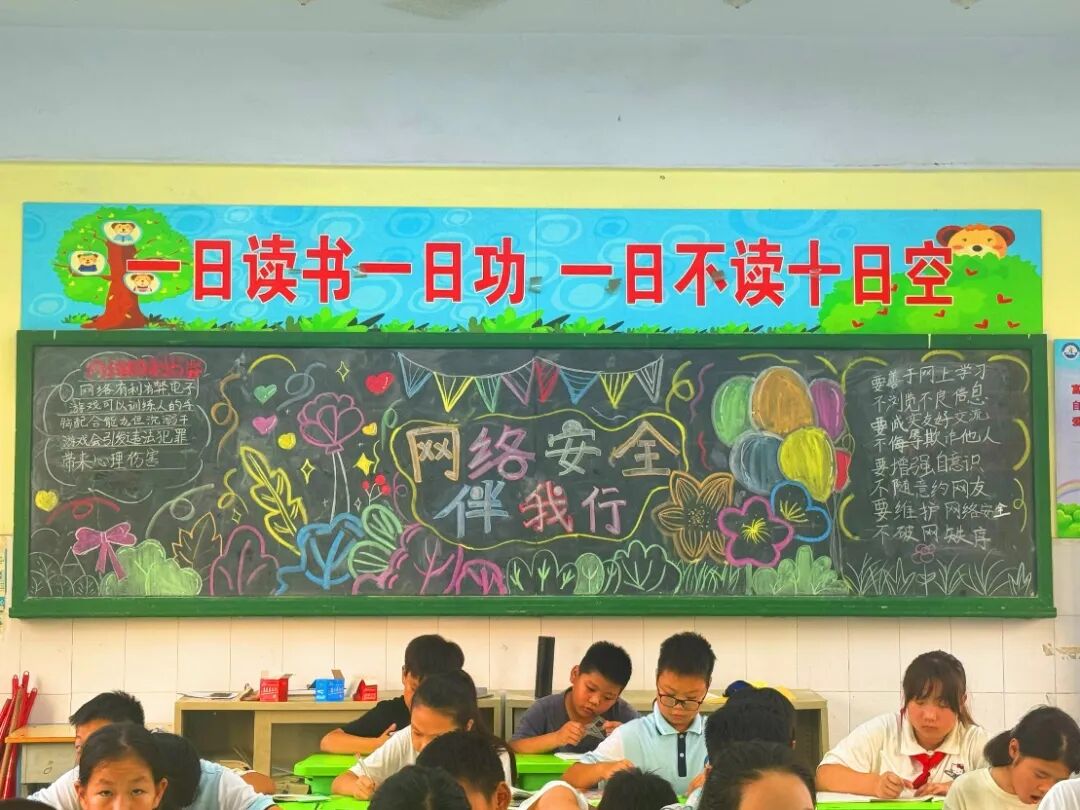 一日读书一日功 一日不读十日空
网络有利有弊电子
游戏可以训练人的手
脑配合能力也沉溺于
游戏会引发违法犯罪
带来心理伤害
网络安全
伴我行
要善于网上学习
不浏览不良信息
要诚实友好交流
不侮辱欺诈他人
要增强自意识
不随意约网友
要维护网络安全
不破网秩序